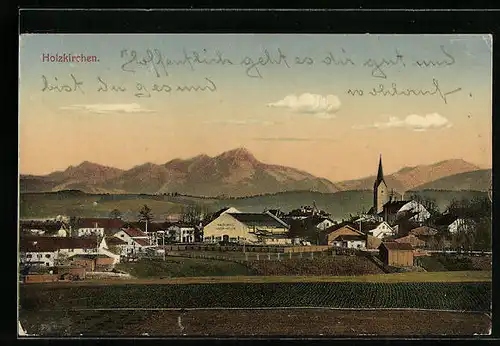 Holzkirchen.
Hoffentlich geht es dir gut und
bist du gesund